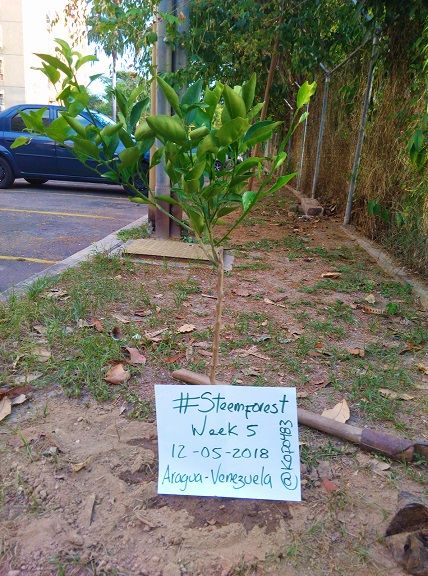 #Steemforest
Week 5
12-05-2018
Aragua-Venezuela
@Kapo483